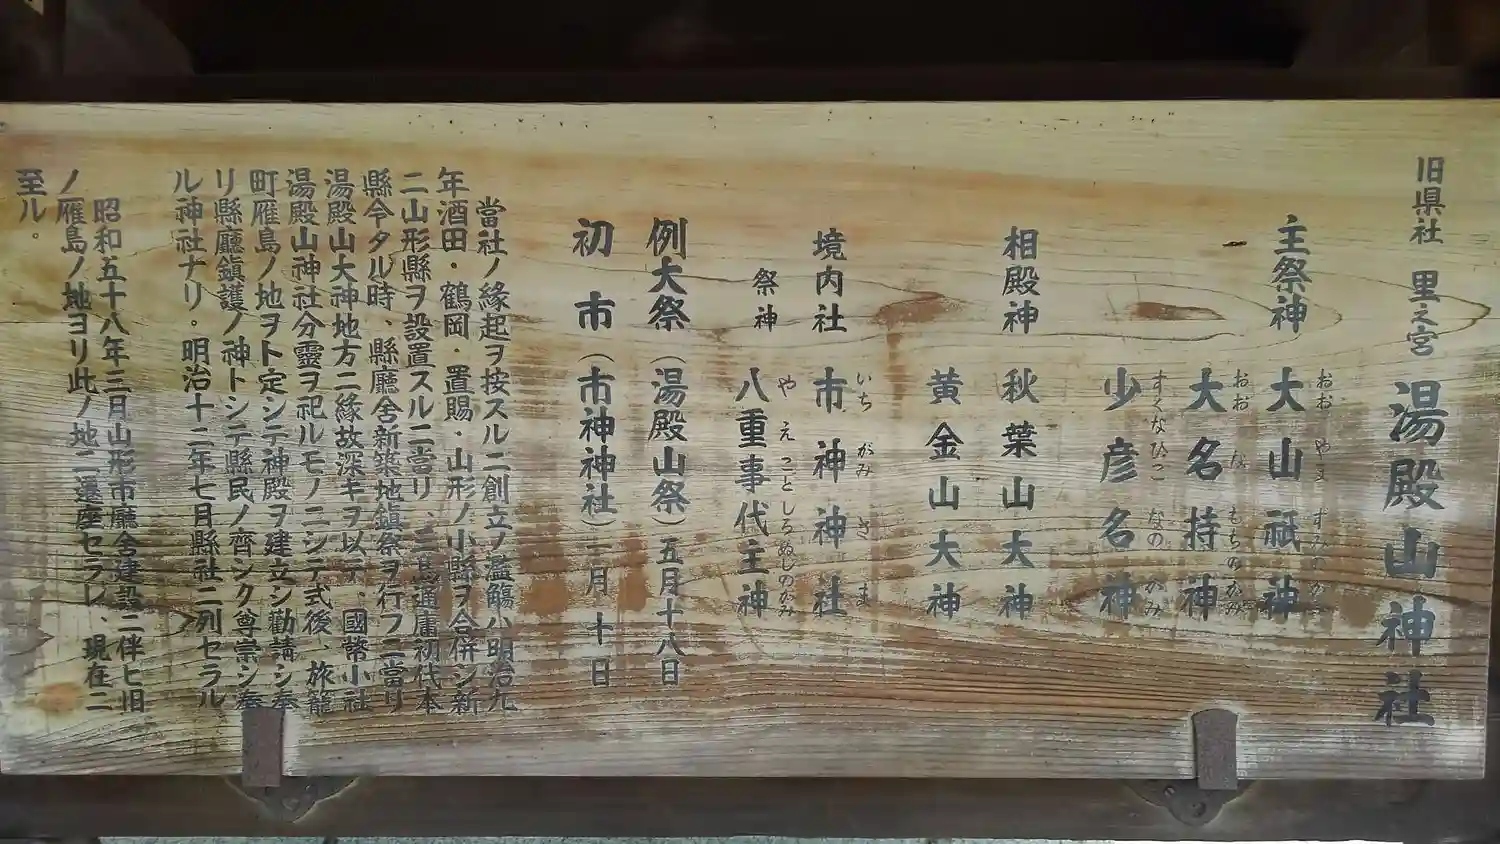 旧県社 里之宮 湯殿山神社
主祭神 大山祇神
おお やま
大名持神
おお な もちのかみ
少彦名神
すくなひこ なの かみ
相殿神 秋葉山大神
黄金山大神
境内社 市神神社
いち がみ
祭神 八重事代主神
や え ことしろぬしのかみ
例大祭(湯殿山祭)五月十八日
初 市(市神神社)一月 十日
當社ノ縁起ヲ按スルニ創立ノ濫觴ハ明治九
年酒田・鶴岡・置賜・山形ノ小縣ヲ合併シ新
ニ山形縣ヲ設置スルニ當リ、三島通庸初代本
縣令タル時、縣廳舎新築地鎮祭ヲ行フニ當リ
湯殿山大神地方ニ縁故深キヲ以テ、國幣小社
湯殿山神社分靈ヲ祀ルモノニシテ式後、旅籠
町雁島ノ地ヲト定シテ神殿ヲ建立シ勸請シ奉
リ縣廳鎭護ノ神トシテ縣民ノ齊シク尊崇シ奉
ル神社ナリ。明治十二年七月縣社ニ列セラル
昭和五十八年三月山形市廳舎建設ニ伴ヒ旧
ノ雁島ノ地ヨリ此ノ地ニ遷座セラレ、現在ニ
至ル。